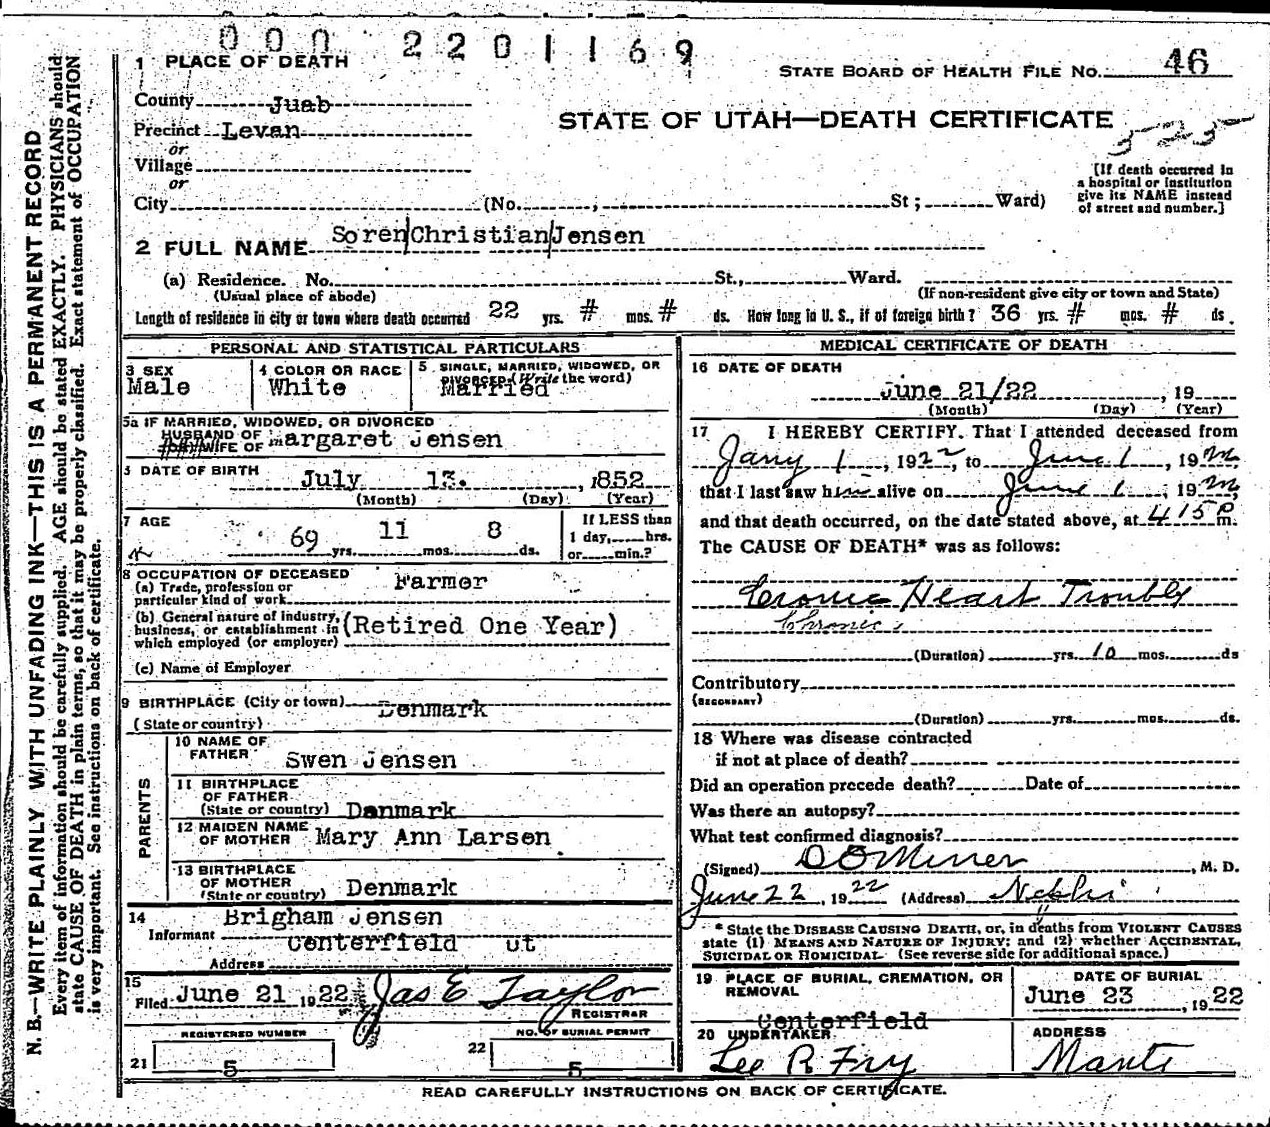 000 2201169
1 PLACE OF DEATH
STATE BOARD OF HEALTH FILE NO. 46
County Juab
STATE OF UTAH—DEATH CERTIFICATE
525
Precinct Levan
or
Village
or
City (No. , St ; Ward)
[If death occurred in
a hospital or institution
give its NAME instead
of street and number.]
2 FULL NAME Soren Christian Jensen
(a) Residence. No. St., Ward.
(Usual place of abode) (If non-resident give city or town and State)
Length of residence in city or town where death occurred 22 yrs. # mos. # ds. How long in U. S., if of foreign birth? 36 yrs. # mos. # ds.
PERSONAL AND STATISTICAL PARTICULARS
3 SEX
Male
4 COLOR OR RACE
White
5 SINGLE, MARRIED, WIDOWED, OR
DIVORCED (Write the word)
Married
5a IF MARRIED, WIDOWED, OR DIVORCED
HUSBAND OF
WIFE OF Margaret Jensen
DATE OF BIRTH
July 13. , 1852
(Month) (Day) (Year)
7 AGE
69 yrs. 11 mos. 8 ds.
If LESS than
1 day, hrs.
or min.?
8 OCCUPATION OF DECEASED
(a) Trade, profession or
particular kind of work Farmer
(b) General nature of industry,
business, or establishment in
which employed (or employer) (Retired One Year)
(c) Name of Employer
9 BIRTHPLACE (City or town) Denmark
(State or country)
PARENTS
10 NAME OF
FATHER Swen Jensen
11 BIRTHPLACE
OF FATHER
(State or country) Danmark
12 MAIDEN NAME
OF MOTHER Mary Ann Larsen
13 BIRTHPLACE
OF MOTHER
(State or country) Denmark
14
Informant Brigham Jensen
Address Centerfield Ut
15
Filed June 21, 1922 Jas E Taylor
REGISTRAR
REGISTERED NUMBER
21 5
NO. OF BURIAL PERMIT
22 5
MEDICAL CERTIFICATE OF DEATH
16 DATE OF DEATH
June 21/22 , 19
(Month) (Day) (Year)
17 I HEREBY CERTIFY. That I attended deceased from
Jany 1, 1922, to June 1, 1922,
that I last saw him alive on June 1, 1922,
and that death occurred, on the date stated above, at 415 P m.
The CAUSE OF DEATH* was as follows:
Cronic Heart Trouble
Chronic
(Duration) yrs. 10 mos. ds
Contributory
(SECONDARY)
(Duration) yrs. mos. ds.
18 Where was disease contracted
if not at place of death?
Did an operation precede death? Date of
Was there an autopsy?
What test confirmed diagnosis?
(Signed) D O Miner, M. D.
June 22, 1922 (Address) Nephi
* State the DISEASE CAUSING DEATH, or, in deaths from VIOLENT CAUSES
state (1) MEANS AND NATURE OF INJURY; and (2) whether ACCIDENTAL,
SUICIDAL OR HOMICIDAL. (See reverse side for additional space.)
19 PLACE OF BURIAL, CREMATION, OR
REMOVAL
Centerfield
DATE OF BURIAL
June 23, 1922
20 UNDERTAKER
Lee R Fry
ADDRESS
Manti
READ CAREFULLY INSTRUCTIONS ON BACK OF CERTIFICATE.
N. B.—WRITE PLAINLY WITH UNFADING INK—THIS IS A PERMANENT RECORD
Every item of information should be carefully supplied. AGE should be stated EXACTLY. PHYSICIANS should
state CAUSE OF DEATH in plain terms, so that it may be properly classified. Exact statement of OCCUPATION
is very important. See instructions on back of certificate.